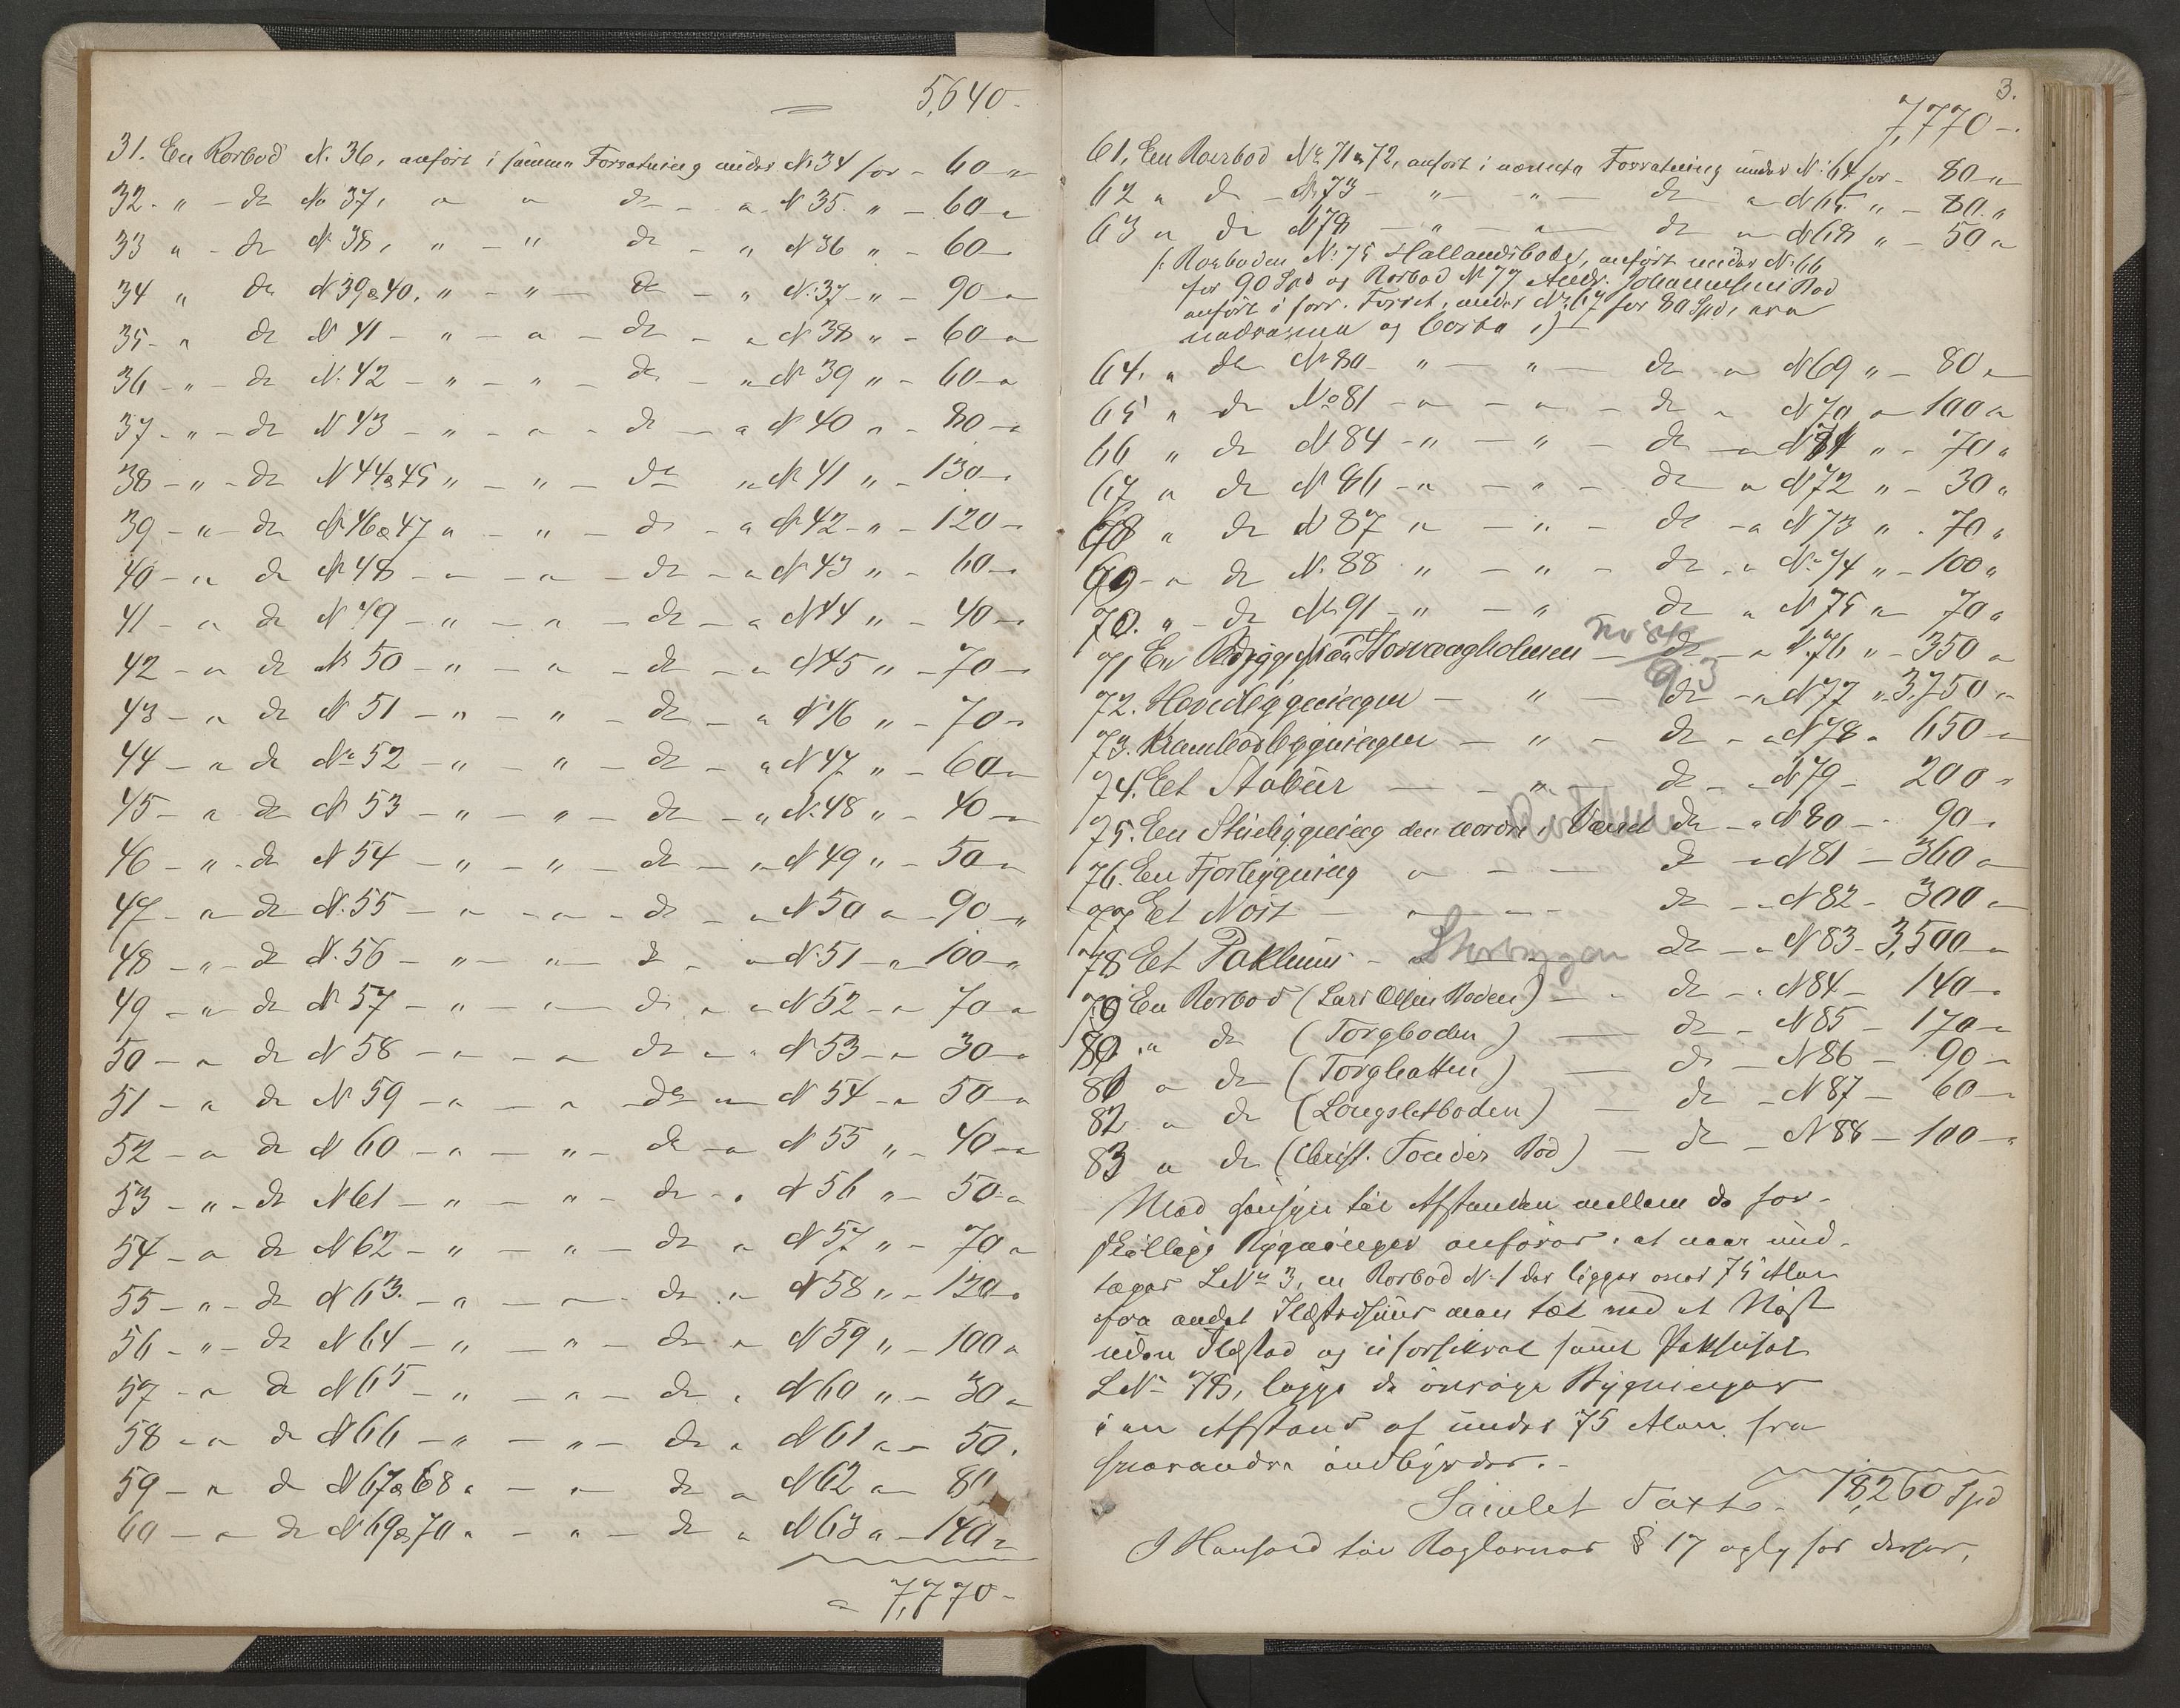 5,640-
31. En Rorbod N. 36, anført i samme Forretning under No 34 for - 60 "
32. " - do No 37, " " do - " N 35. " - 60 - "
33 " - do N 38, " - " do - " N 36 " - 60 -
34 " do N 39 & 40, " - " - do - " N. 37 - " - 90 - "
35 - " do N 41 - " - " - do - " N 38 " - 60 - "
36 - " - do N. 42 - " - " - do - " N 39 " - 60 - "
37 - " - do N 43 - " - " - do - " N 40 " - 80 - "
38 - " - do N 44 & 45 " - " - do " N 41 " - 130 -
39 - " - do N 46 & 47 " - " - do - " N 42 - " - 120 -
40 - " do N 48 - " - " - do - " N 43 " - 60 -
41 - " do N 49 - " - " - do - " N 44 " - 40 -
42 - " do N 50 - " - " - do - " N 45 " - 70 -
43 - " do N 51 - " - " - do - " N 46 " - 70 -
44 - " do No 52 - " - " - do - " N 47 " - 60 "
45 - " do N 53 - " - " - do - " N. 48 " - 40 -
46 - " - do N 54 - " - " - do - " N 49 " - 50 "
47 - " - do N. 55 - " - " - do - " N 50 " - 90 - "
48 - " - do N. 56 - " - " - do - " N. 51 - " 100 - "
49 - " - do N 57 - " - " - do " " N 52 - " 70 - "
50 - " do N 58 - " - " do " " N 53 - " 30 - "
51 - " do N 59 - " - " - do " N 54 - " 50 - "
52 - " do N 60 - " - " - do - " N 55 " - 40 - "
53 - " - do N 61 - " - " - do - " N 56 " - 50 - "
54 - " do N 62 - " - " - do " N 57 " - 70 "
55 - " - do N 63. - " - " - do " N 58 " - 120 "
56 - " - do N 64 - " - " - do " N 59 " - 100 "
57 - " do N 65 - " - " - do " N 60 " - 30 "
58 - " do N 66 - " - " - do " N 61 " - 50.
59 - " do N 67 & 68 " - " do " N 62 " - 80
60 - " do N 69 & 70 " - " - do " N 63 " - 140 "
" 7,770 -
3.
7,770 -
61, En Rorbod No 71 & 72, anført i nævnte Forretning under N. 64 for - 80 "
62 " do - N 73 - " - " - do " N 65 " - 80. "
63 " do N 78 - " - " do " N 68 " - 50 "
(: Rorboden N. 75 Hallandsboden, anført under N. 66
for 90 Spd og Rorbod N 77 Andr. Johannesens Bod
anført i forr. Forret, under No 67 for 80 Spd, ere
nedrevne og borte :)
64. " do N 80 - " - " - do " N 69 " - 80 "
65 " do No 81 - " - " - do " N 70 " 100 "
66 " do N 84 - " - " - do - " N 71 " - 70 "
67 " do N 86 - " - " - do " N 72 " - 30 "
68 " do N 87 " - " - do - " N 73 " - 70 "
69 - " do N. 88 " - " - do - " N. 74 " - 100 "
70. " - do N. 91 - " - " - do " N 75 " 70 "
71 En Brygge paa Storvaagholmen - do - " N. 76 " - 350 "
93
72. Hovedbygningen - " - do - " N 77 " 3,750 "
73. Krambodbygningen - " - do - " N 78 " 650 "
74. Et Stabür - - " - do - " N 79 - 200 "
75. En Stübygning den nordre " do - " N 80 - 90 -
76. En Fjøsbygning " - - do - " N 81 - 360 "
77 Et Nøst - " - - do - " N 82 - 300 "
78 Et Pakhuus - " Storbryggen do - " N 83 - 3,500 "
79 En Rorbod (Lars Olsen Boden) - " do - " N 84 - 140 -
80. " do (Torgboden) - do - N 85 - 170 "
81 " do (Torghatten) - do - N 86 - 90 "
82 " do (Langsletboden) - do - N 87 - 60 -
83 " do (Christ. Tonders Bod) - do - N 88 - 100 - "
Med Hensyn til Afstanden mellem de for-
skjellige Bygninger anføres: at naar und-
tages LNo 3, en Rorbod No 1 der ligger over 75 Alen
fra andet Ildstedshuus men tæt ved et Nøst
uden Ildsted og uforsikret samt Pakhuset
LNo 78, ligge de øvrige Bygninger
i en Afstand af under 75 Alen fra
hverandre indbyrdes. -
Samlet Taxt. 18,260 Spd
I Henhold til Reglernes § 17 for derfor,